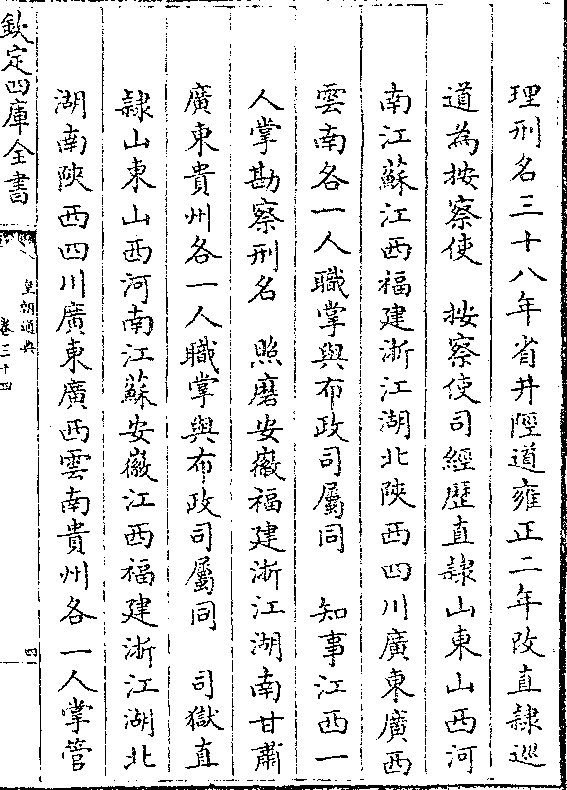 理刑名三十八年省井陘道雍正二年改直隷巡
道為按察使　按察使司經歷直隷山東山西河
南江蘇江西福建浙江湖北陝西四川廣東廣西
雲南各一人職掌與布政司屬同　知事江西一
人掌勘察刑名　照磨安徽福建浙江湖南甘肅
廣東貴州各一人職掌與布政司屬同　司獄直
隷山東山西河南江蘇安徽江西福建浙江湖北
湖南陝西四川廣東廣西雲南貴州各一人掌管
欽定四庫全書
皇朝通典
卷三十四
四